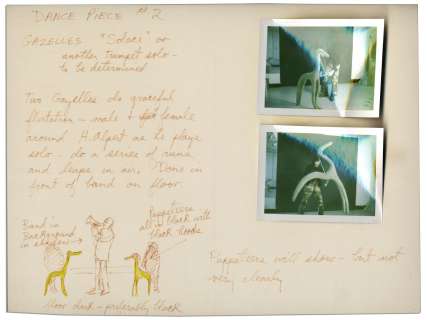 DANCE PIECE #2
GAZELLES "Solaci" or
another trumpet solo -
to be determined
Two Gazelles do graceful
flirtation - male + female
around H. Alpert as he plays
solo - do a series of runs
and leaps in air. Done in
front of band on floor
Band in
Background
in shadow
Puppeteers
all in black with
black hoods
floor dark - preferably black
Puppeteers will show - but not
very clearly